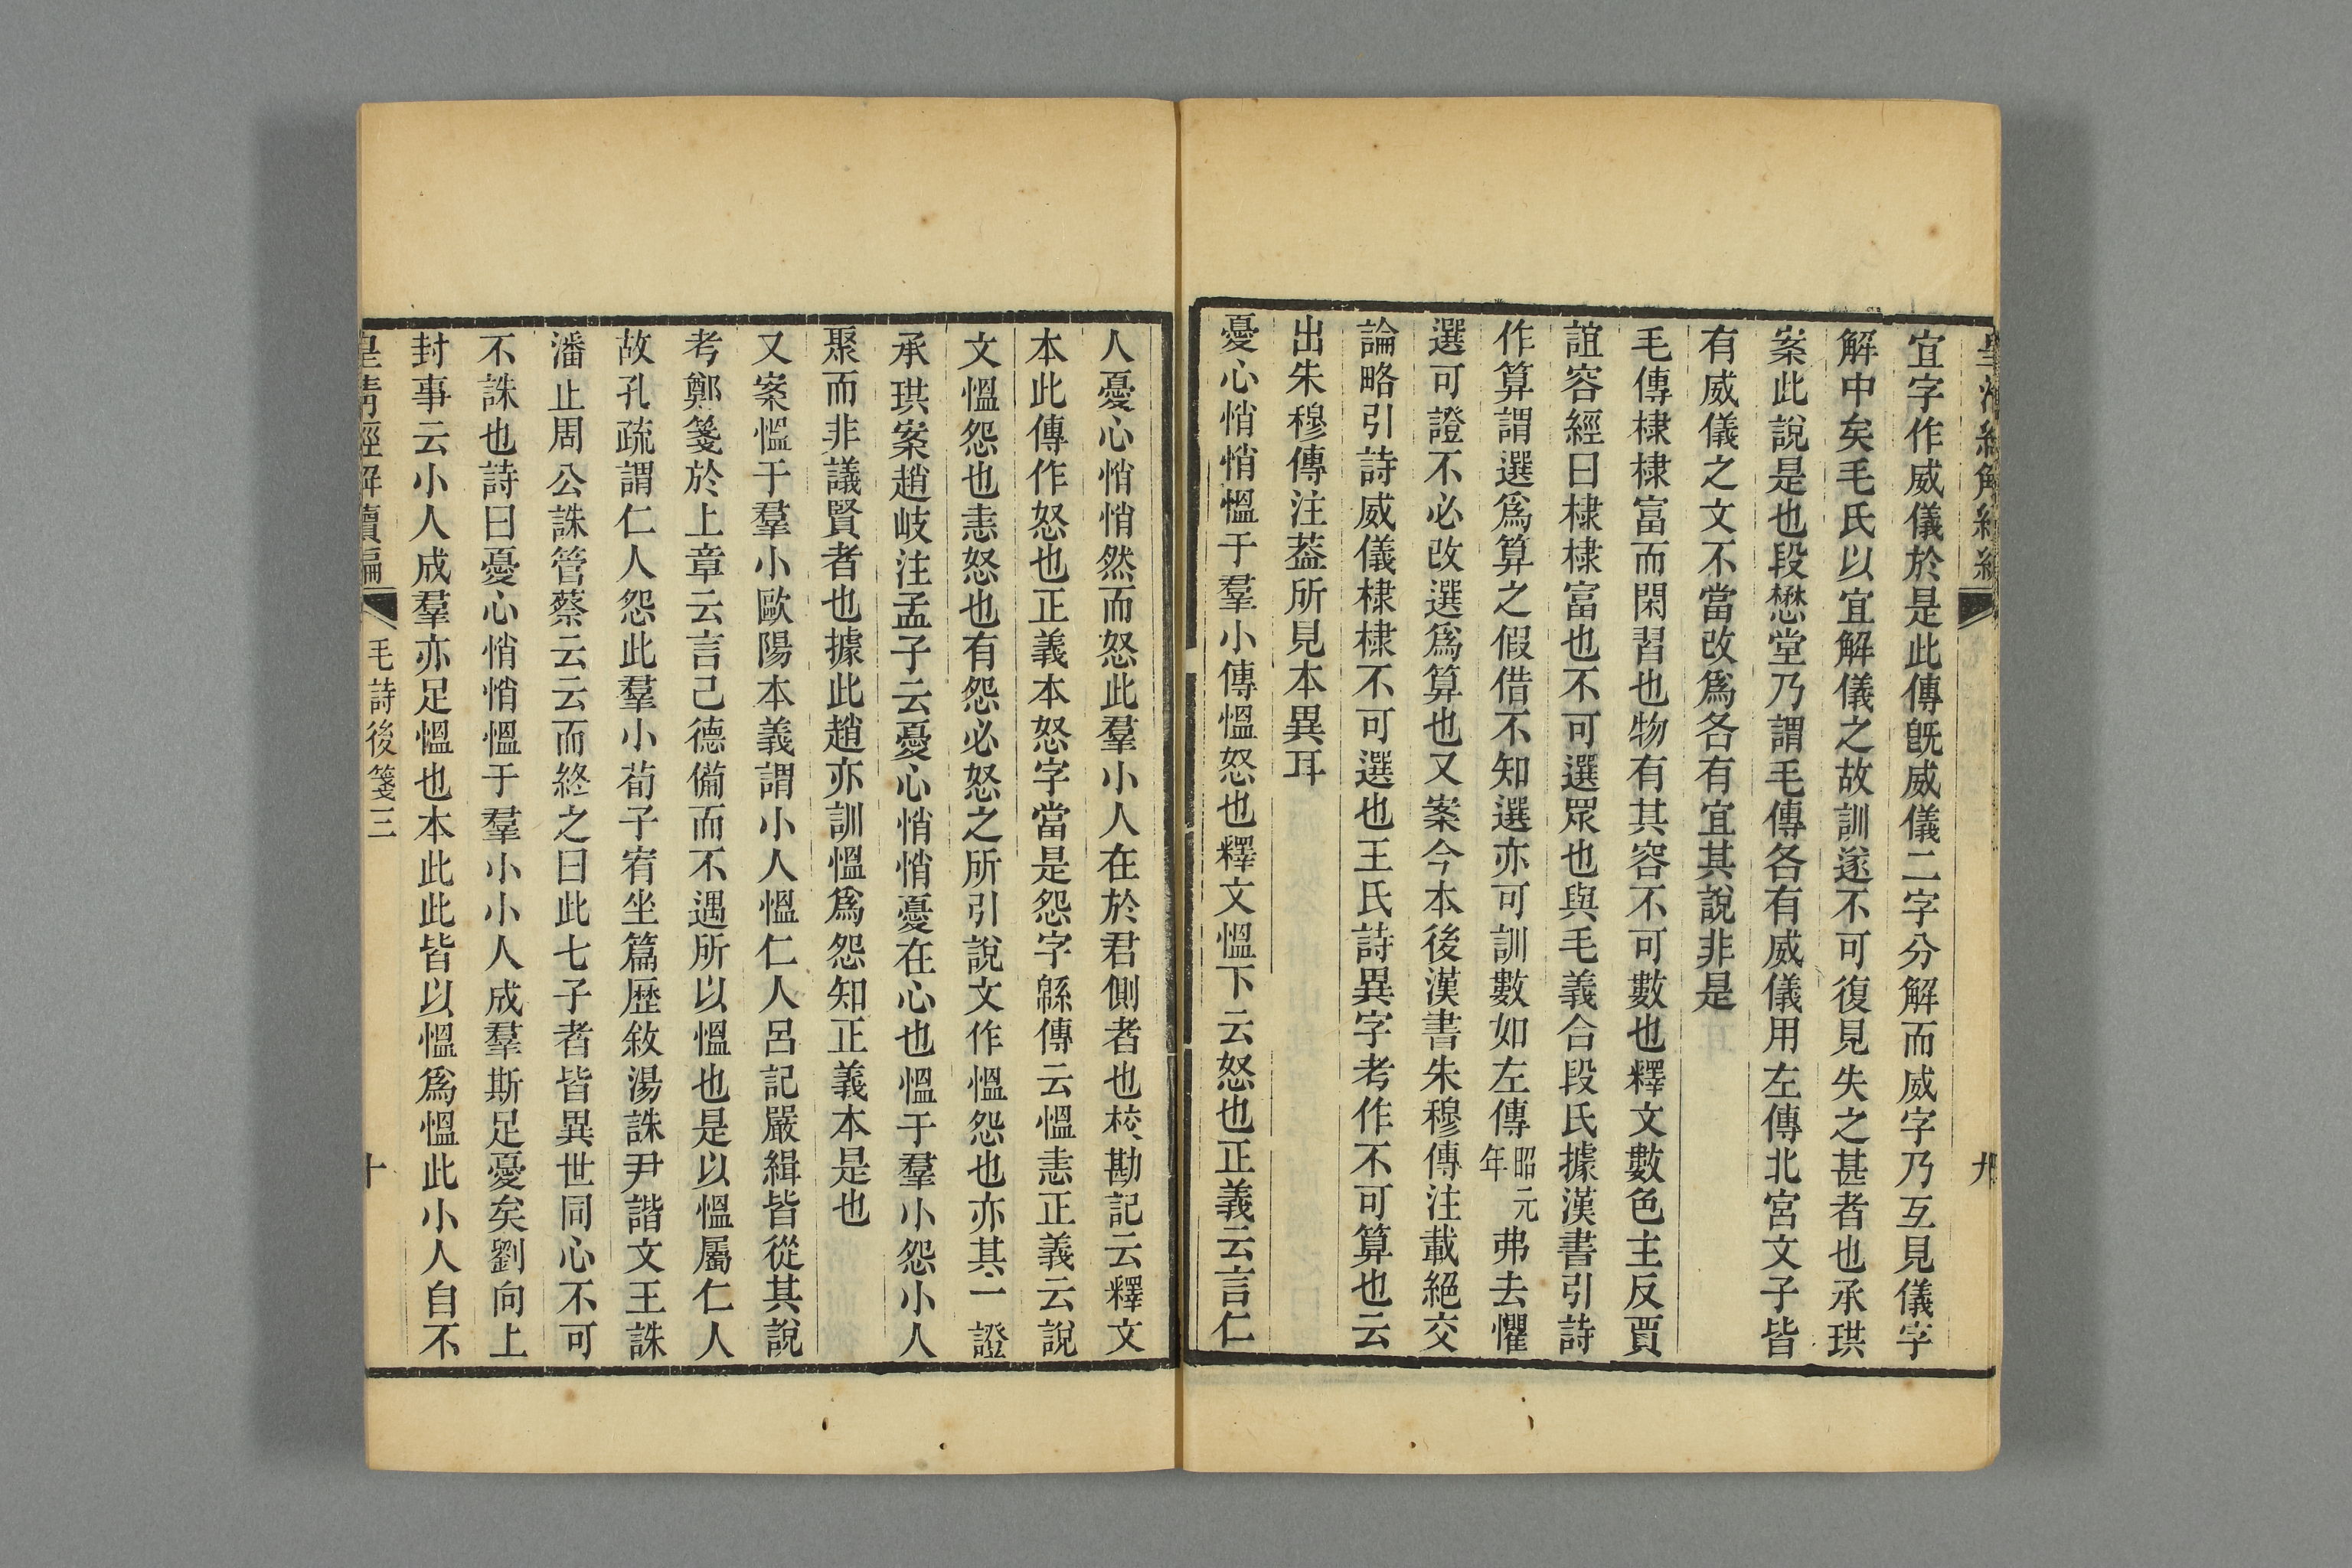 皇清經解續編
九
宜字作威儀於是此傳旣威儀二字分解而威字乃互見儀字
解中矣毛氏以宜解儀之故訓遂不可復見失之甚者也承珙
案此說是也段懋堂乃謂毛傳各有威儀用左傳北宮文子皆
有威儀之文不當改爲各有宜其說非是
毛傳棣棣富而閑習也物有其容不可數也釋文數色主反賈
誼容經曰棣棣富也不可選眾也與毛義合段氏據漢書引詩
作算謂選爲算之假借不知選亦可訓數如左傳昭元年弗去懼
選可證不必改選爲算也又案今本後漢書朱穆傳注載絕交
論略引詩威儀棣棣不可選也王氏詩異字考作不可算也云
出朱穆傳注葢所見本異耳
憂心悄悄慍于羣小傳慍怒也釋文慍下云怒也正義云言仁
人憂心悄悄然而怒此羣小人在於君側者也校勘記云釋文
本此傳作怒也正義本怒字當是怨字緜傳云慍恚正義云說
文慍怨也恚怒也有怨必怒之所引說文作慍怨也亦其一證
承珙案趙岐注孟子云憂心悄悄憂在心也慍于羣小怨小人
聚而非議賢者也據此趙亦訓慍爲怨知正義本是也
又案慍于羣小歐陽本義謂小人慍仁人呂記嚴緝皆從其說
考鄭箋於上章云言己德備而不遇所以慍也是以慍屬仁人
故孔疏謂仁人怨此羣小荀子宥坐篇歷敘湯誅尹諧文王誅
潘止周公誅管蔡云云而終之曰此七子者皆異世同心不可
不誅也詩曰憂心悄悄慍于羣小小人成羣斯足憂矣劉向上
封事云小人成羣亦足慍也本此此皆以慍爲慍此小人自不
皇清經解續編
毛詩後箋三
十